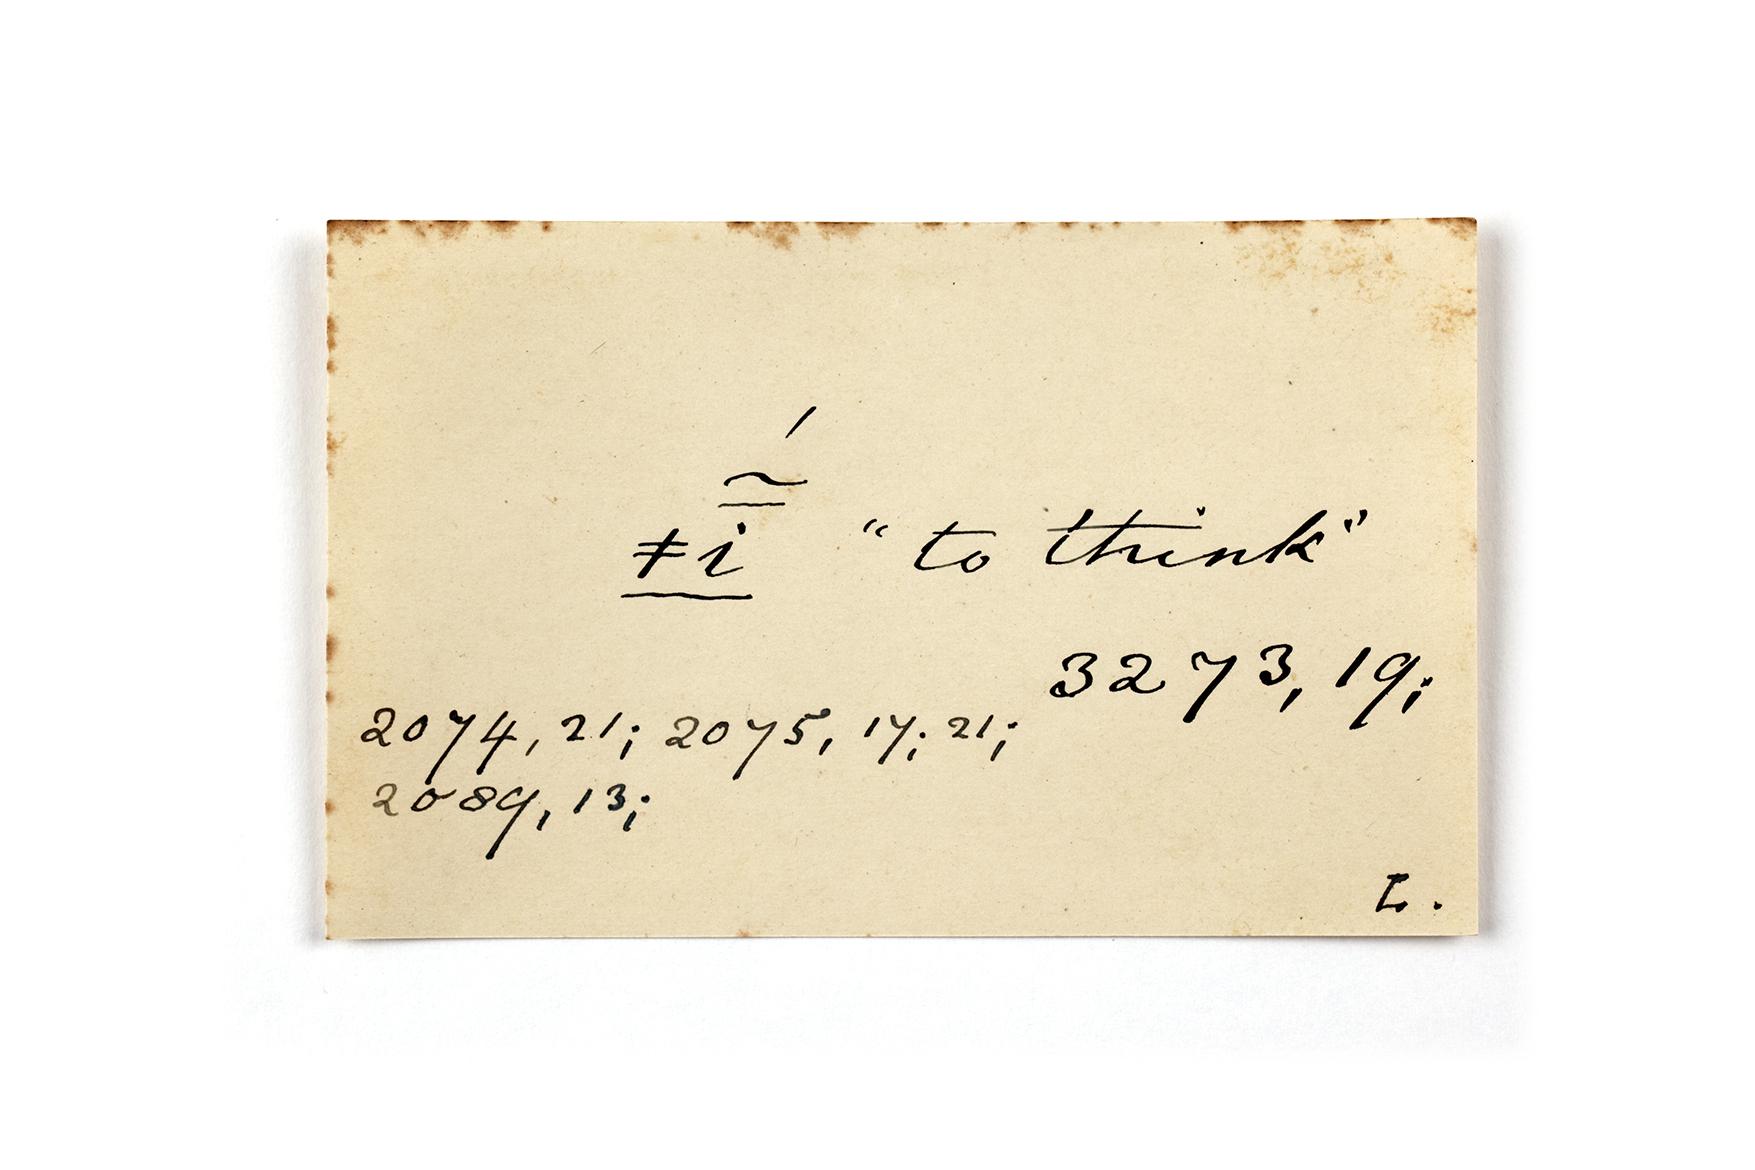 ǂĩ̱́ "to think"
3273, 19;
2074, 21; 2075, 17; 21;
2089, 13;
L.